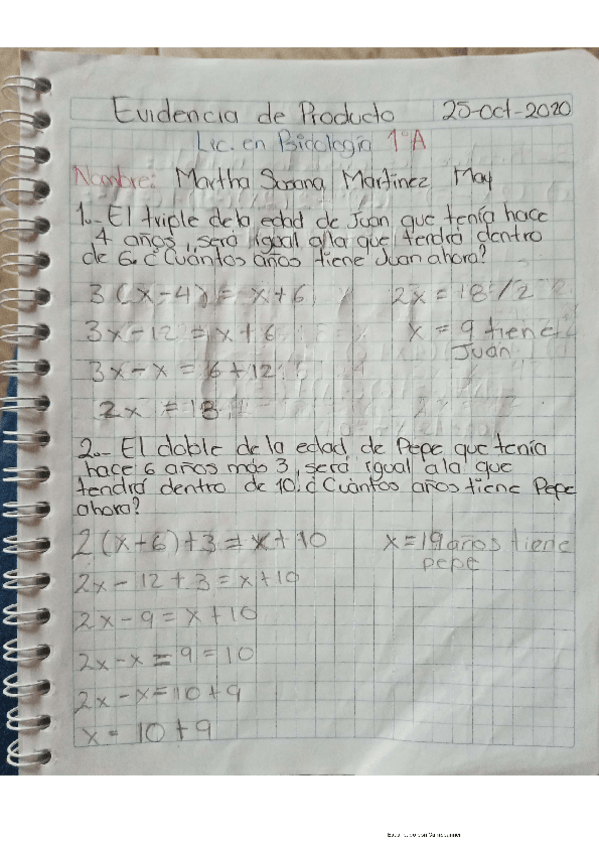 Evidencia de Producto 25-Oct-2020
Lic. en Psicología 1°A
Nombre: Martha Susana Martinez May
1.- El triple de la edad de Juan que tenía hace
4 años, será igual a la que tendrá dentro
de 6. ¿Cuántos años tiene Juan ahora?
3(x-4) = x+6
3x-12 = x+6
3x-x = 6+12
2x = 18
2x = 18/2
x = 9 tiene
Juan
2.- El doble de la edad de Pepe que tenía
hace 6 años más 3, será igual a la que
tendrá dentro de 10. ¿Cuántos años tiene Pepe
ahora?
2(x+6)+3 = x+10
2x-12+3 = x+10
2x-9 = x+10
2x-x = 9 = 10
2x-x = 10+9
x = 10+9
x = 19 años tiene
pepe